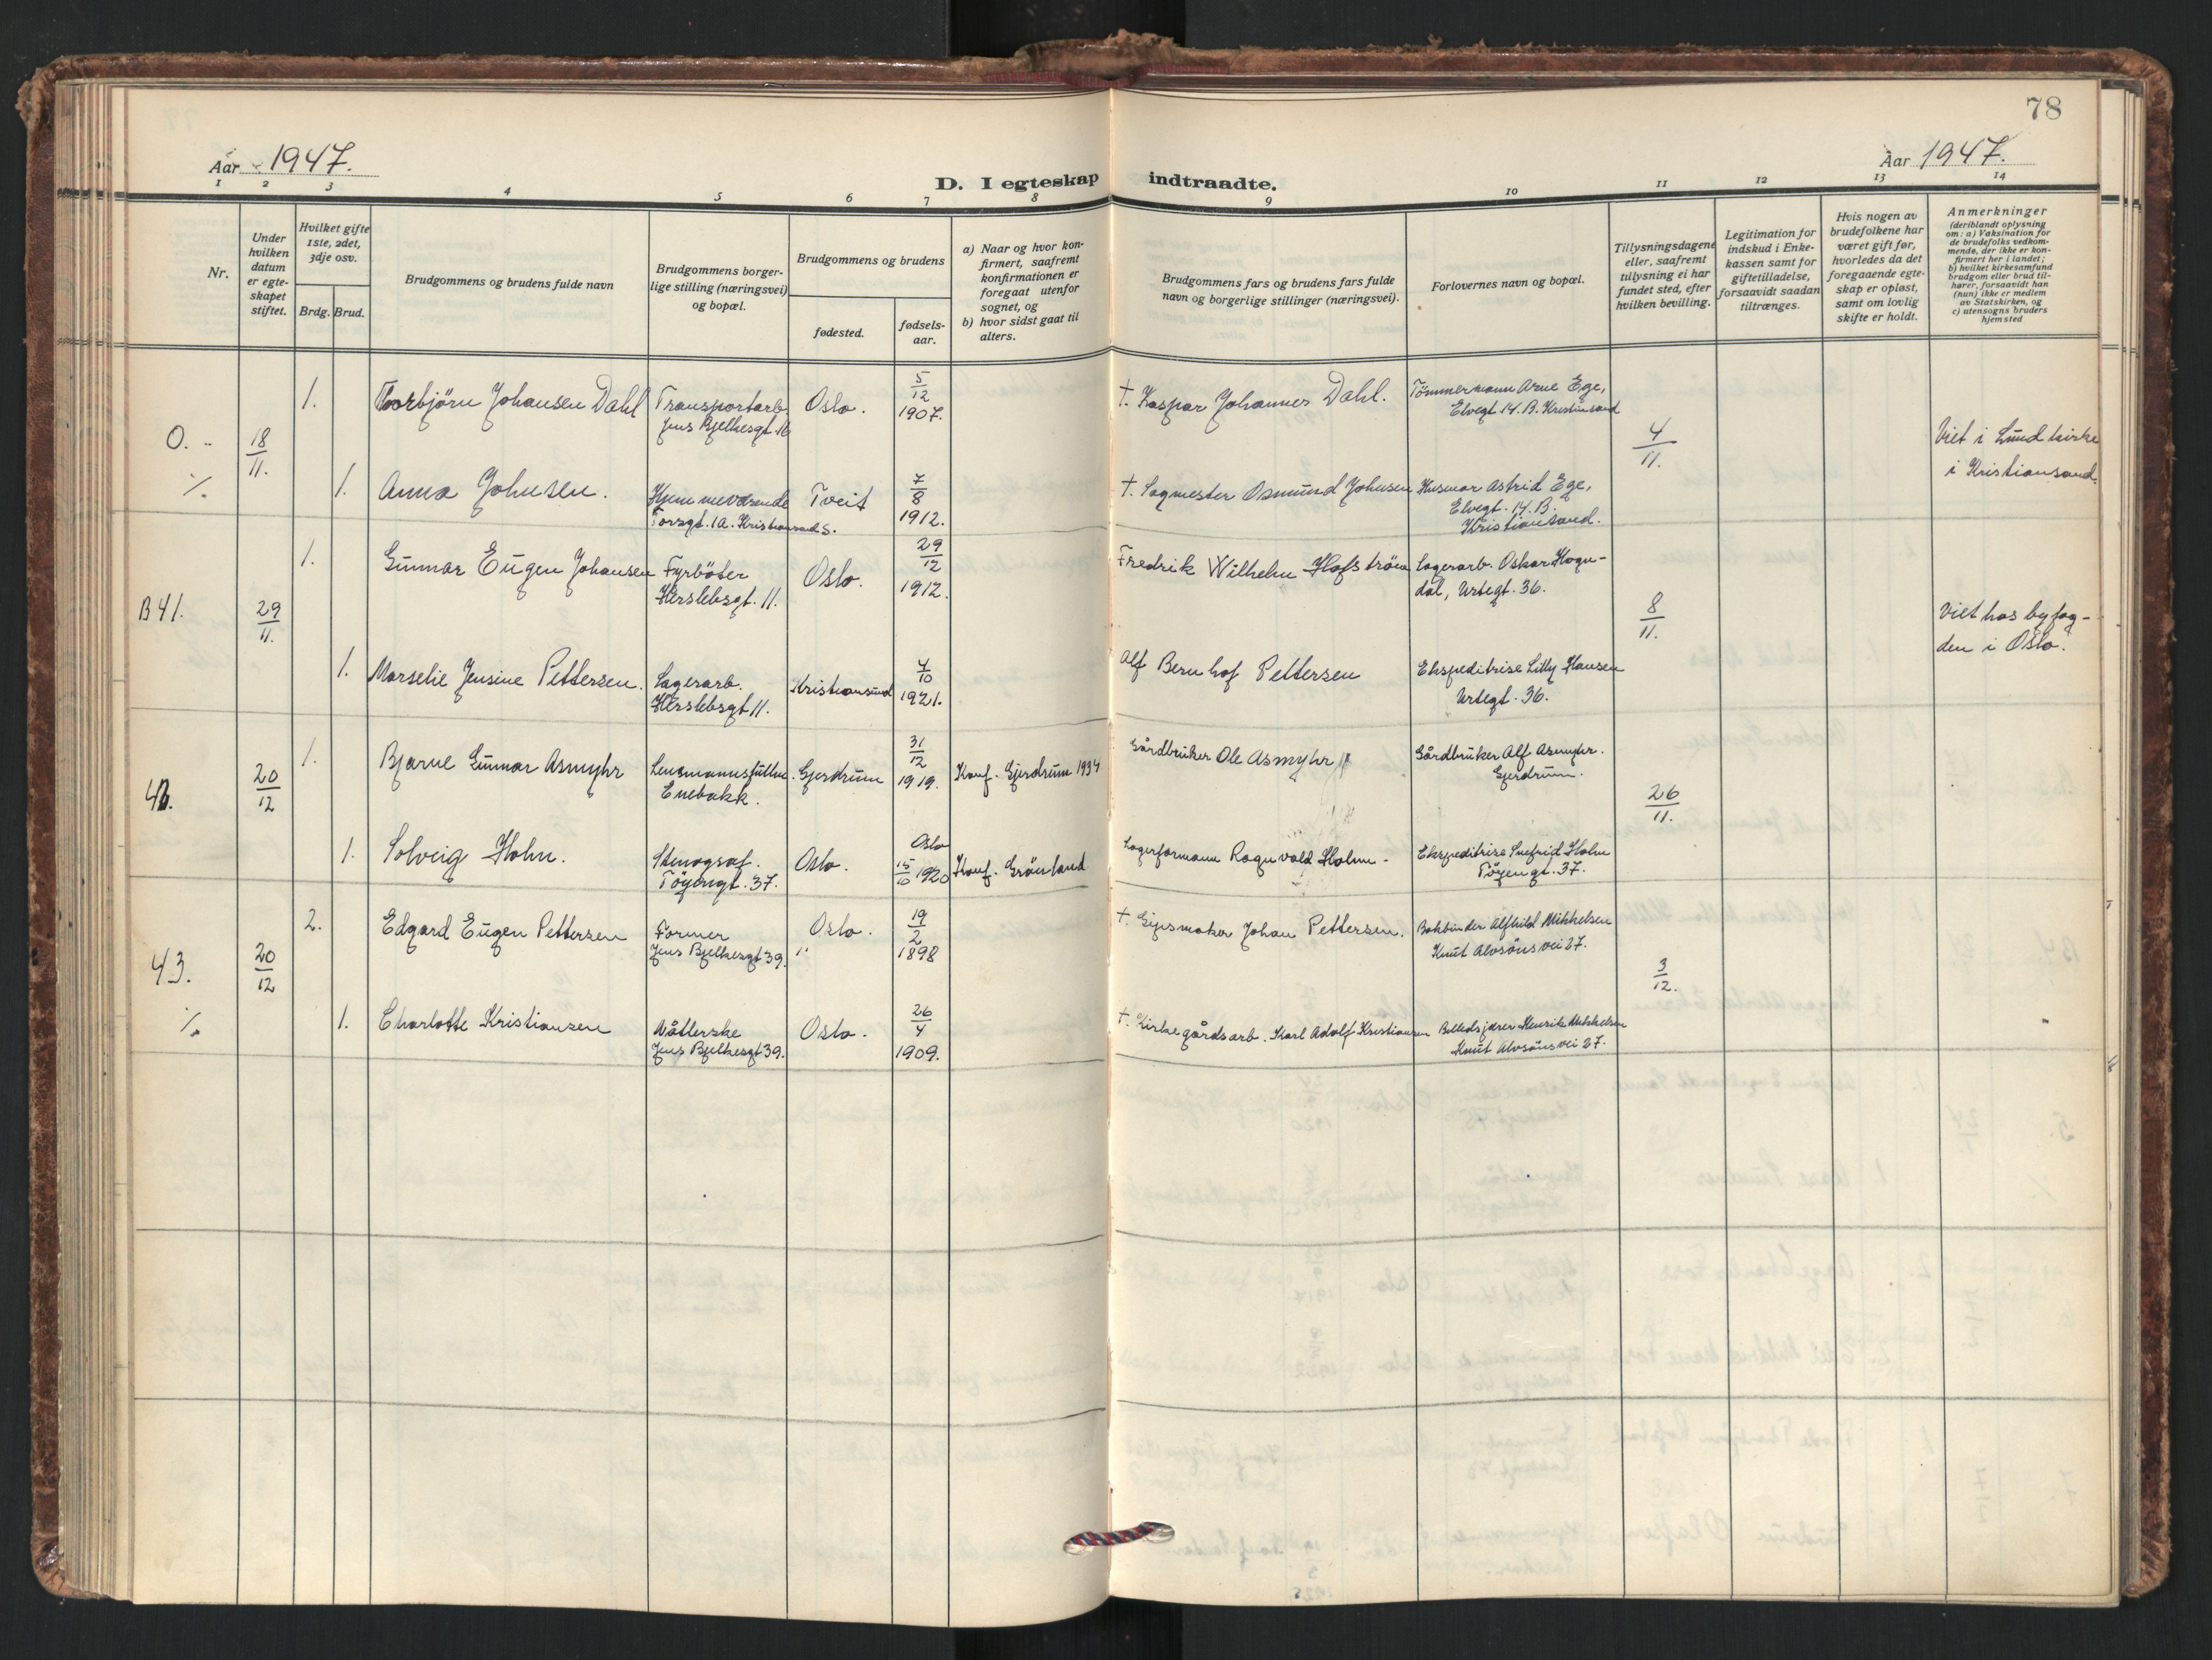 78
Aar 1947.
Aar 1947.
D. I egteskap indtraadte.
1 2 3 4 5 6 7 8 9 10 11 12 13 14
Nr.
Under
hvilken
datum
er egte-
skapet
stiftet.
Hvilket gifte
1ste, 2det,
3dje osv.
Brdg. Brud.
Brudgommens og brudens fulde navn
Brudgommens borger-
lige stilling (næringsvei)
og bopæl.
Brudgommens og brudens
fødested.
fødsels-
aar.
a) Naar og hvor kon-
firmert, saafremt
konfirmationen er
foregaat utenfor
sognet, og
b) hvor sidst gaat til
alters.
Brudgommens fars og brudens fars fulde
navn og borgerlige stillinger (næringsvei).
Forlovernes navn og bopæl.
Tillysningsdagene
eller, saafremt
tillysning ei har
fundet sted, efter
hvilken bevilling.
Legitimation for
indskud i Enke-
kassen samt for
giftetilladelse,
forsaavidt saadan
tiltrænges.
Hvis nogen av
brudefolkene har
været gift før,
hvorledes da det
foregaaende egte-
skap er opløst,
samt om lovlig
skifte er holdt.
Anmerkninger
(deriblandt oplysning
om: a) Vaksination for
de brudefolks vedkom-
mende, der ikke er kon-
firmert her i landet;
b) hvilket kirkesamfund
brudgom eller brud til-
hører, forsaavidt han
(hun) ikke er medlem
av Statskirken, og
c) utensogns bruders
hjemsted
O. 18/11.
1. Thorbjørn Johansen Dahl
Transportarb.
Jens Bjelkesgt. 16
Oslo.
5/12
1907.
†. Kaspar Johannes Dahl.
Tömmermann Arne Ege,
Elvegt. 14. B. Kristiansand
4/11.
Viet i Lund kirke
i Kristiansand.
1. Anna Johnsen.
Hjemmeværende
Torsgt. 1A. Kristiansand S.
Tveit
7/8
1912.
†. Sagmester Osmund Johnsen
Husmor Astrid Ege,
Elvegt. 14. B.
Kristiansand.
B 41. 29/11.
1. Gunnar Eugen Johansen
Fyrböter
Herslebsgt. 11.
Oslo.
29/12
1912.
Fredrik Wilhelm Hofström
Lagerarb. Oskar Hogn-
dal, Urtegt. 36.
8/11.
Viet hos byfog-
den i Oslo.
1. Marselie Jensine Pettersen.
Lagerarb.
Herslebsgt 11.
Kristiansund
4/10
1921.
Alf Bernhof Pettersen
Ekspeditrise Lilly Hansen
Urtegt. 36.
42. 20/12
1. Bjarne Gunnar Asmyhr
Lensmannsfullm.
Enebakk.
Gjerdrum
31/12
1919.
Konf. Gjerdrum 1934
Gårdbruker Ole Asmyhr
Gårdbruker Alf Asmyhr.
Gjerdrum.
26/11.
1. Solveig Holm.
Stenograf.
Töyengt. 37.
Oslo.
Oslo
15/10 1920
Konf. Grönland
Lagerformann Ragnvald Holm.
Ekspeditrise Snefrid Holm
Töyengt. 37.
43. 20/12
2. Edgard Eugen Pettersen
Former
Jens Bjelkesgt 39.
Oslo.
19/2
1898
†. Gipsmaker Johan Pettersen.
Bokbinder Alfhild Mikkelsen
Knut Alvsöns vei 27.
3/12.
1. Charlotte Kristiansen
Nåtlerske
Jens Bjelkesgt 39.
Oslo.
26/4
1909.
†. Kirkegårdsarb. Karl Adolf Kristiansen
Billedskjærer Henrik Mikkelsen
Knut Alvsöns vei 27.